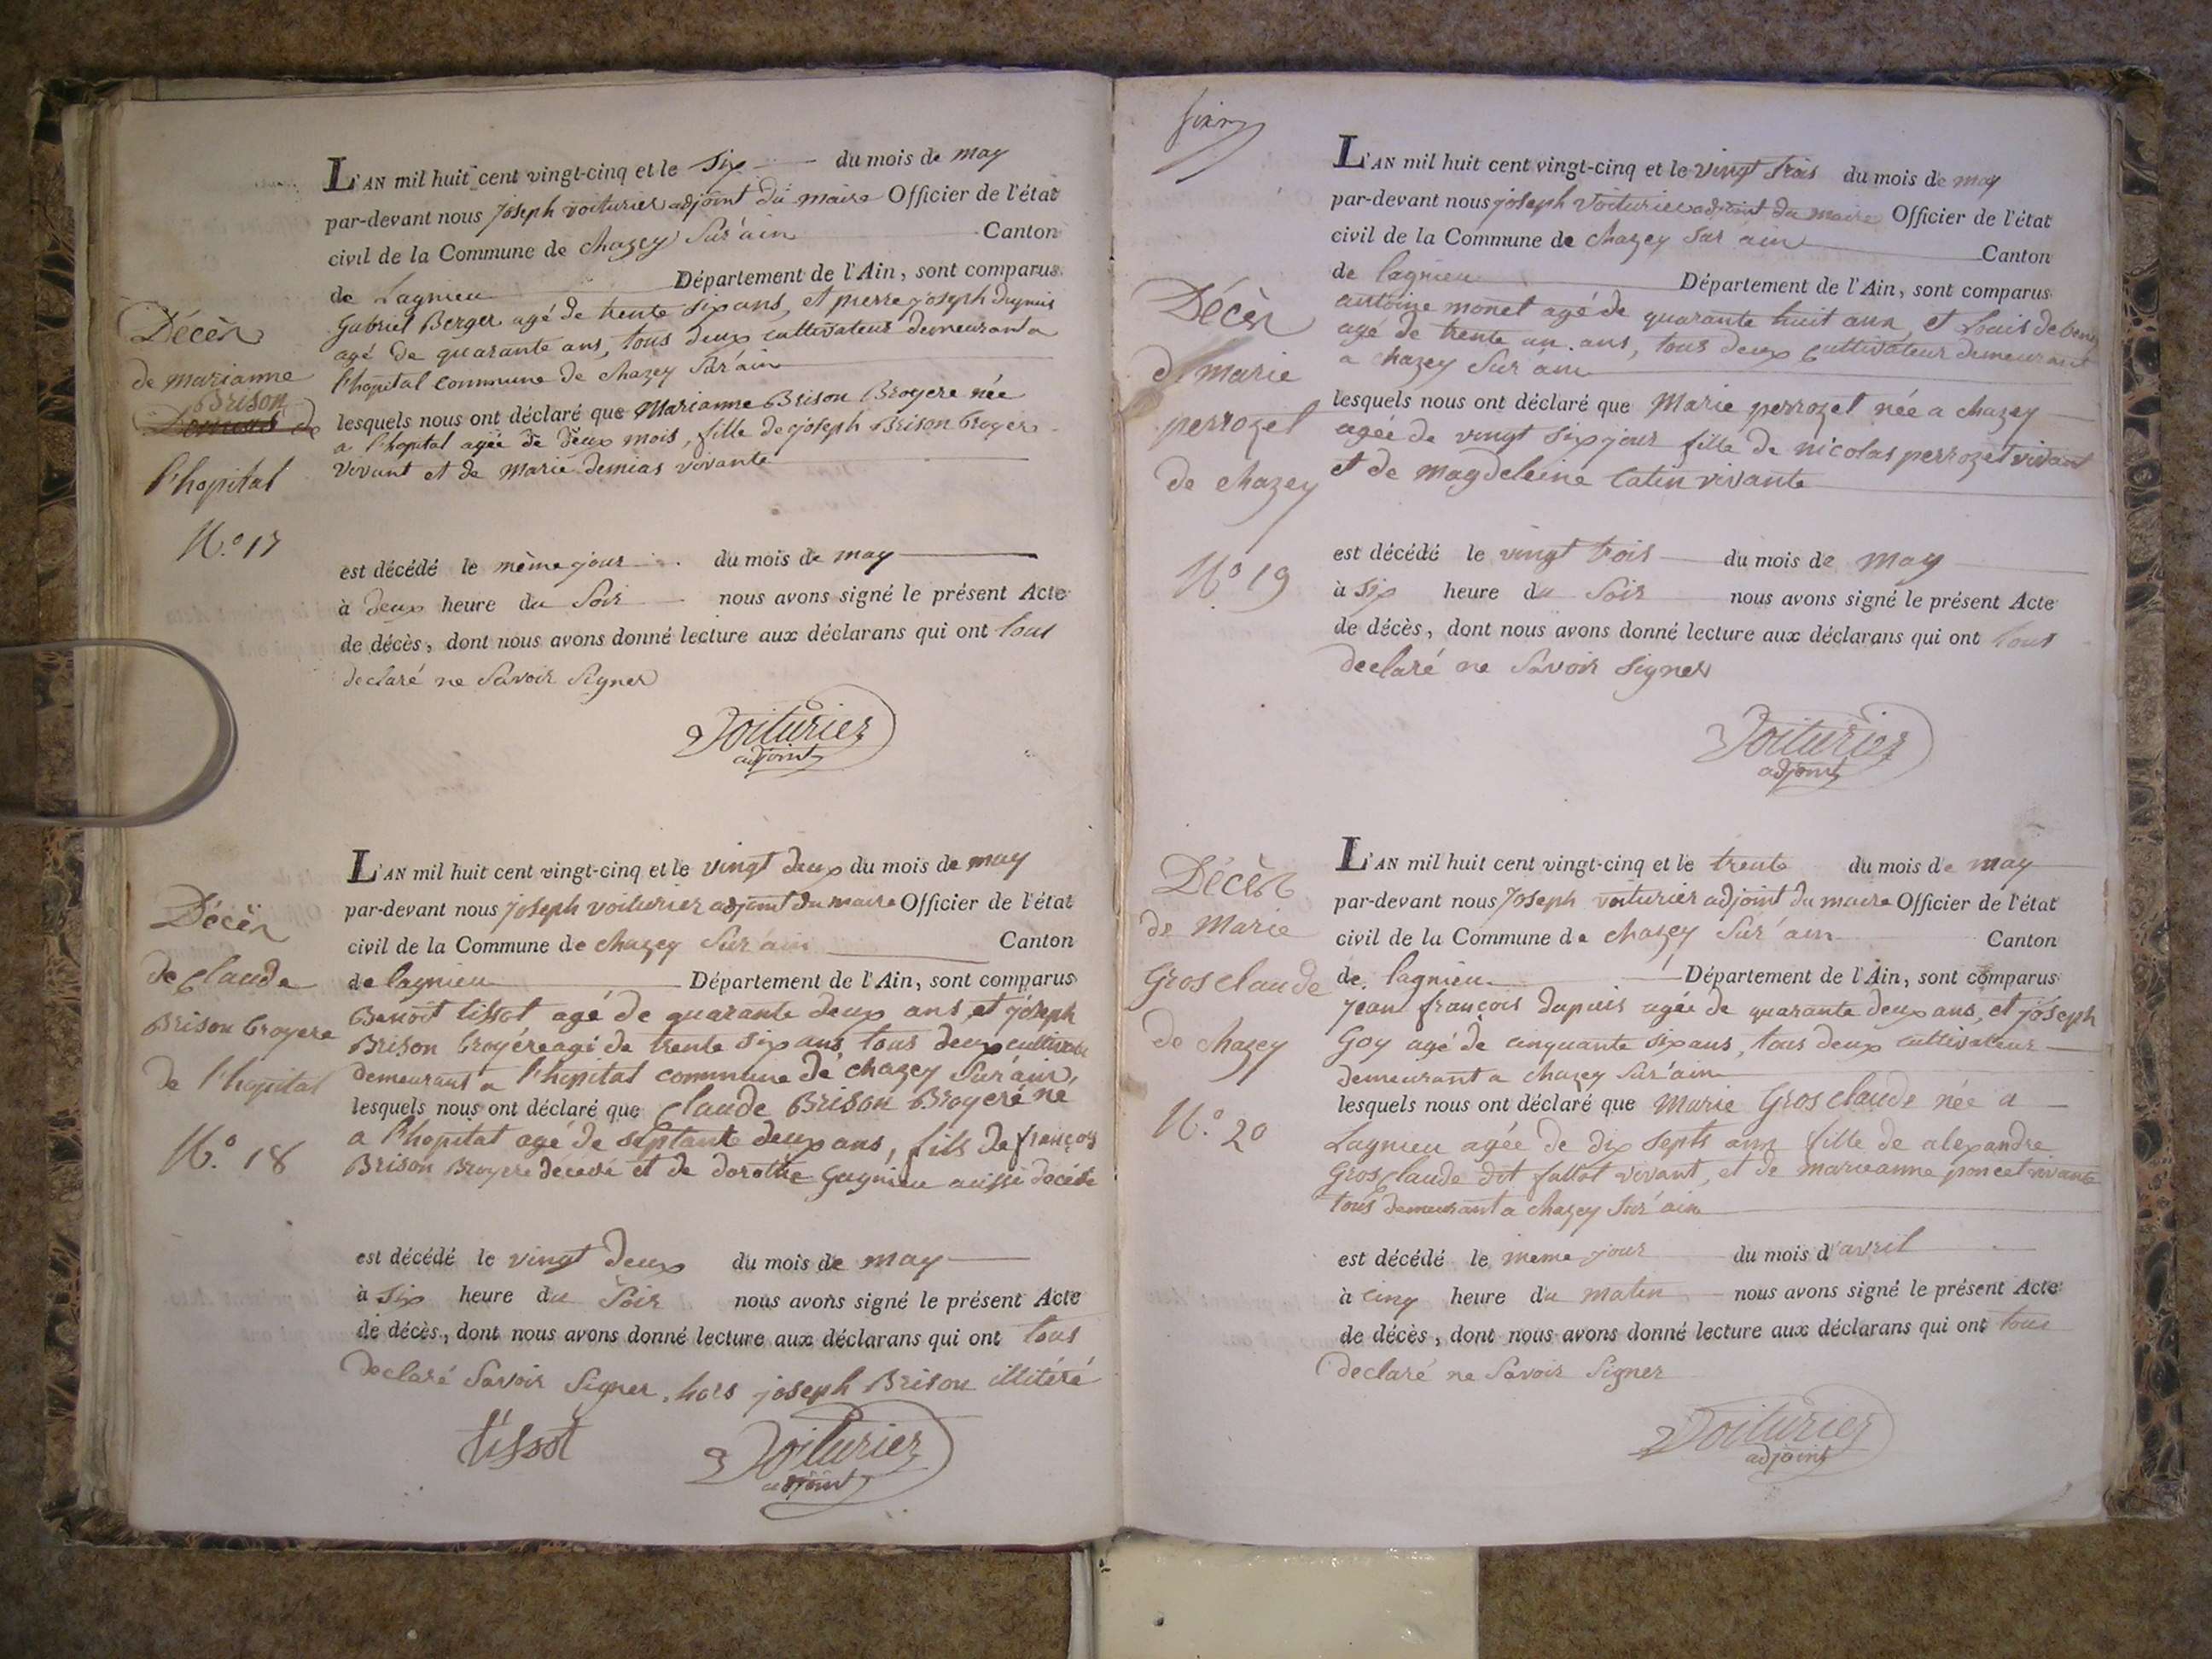 L'AN mil huit cent vingt-cinq et le six du mois de may
par-devant nous joseph voiturier adjoint du maire Officier de l'état
civil de la Commune de chazey sur'ain Canton
de Lagnieu Département de l'Ain, sont comparus
Gabriel Berger agé de trente six ans, et pierre joseph dupuis
agé de quarante ans, tous deux cultivateur demeurant a
l'hopital commune de chazey sur'ain
lesquels nous ont déclaré que Marianne Brison Broyere née
a l'hopital agée de deux mois, fille de joseph Brison broyere
vivant et de Marie demias vivante
est décédé le même jour du mois de may
à deux heure du soir nous avons signé le présent Acte
de décès, dont nous avons donné lecture aux déclarans qui ont tous
declaré ne savoir signer
Voiturier
adjoint
Décès
de marianne
Brison
de
l'hopital
N.o 17
L'AN mil huit cent vingt-cinq et le vingt deux du mois de may
par-devant nous joseph voiturier adjoint du maire Officier de l'état
civil de la Commune de chazey sur'ain Canton
de lagnieu Département de l'Ain, sont comparus
Benoit tissot agé de quarante deux ans, et joseph
Brison broyére agé de trente six ans, tous deux
demeurant a l'hopital commune de chazey sur'ain,
lesquels nous ont déclaré que claude Brison Broyeré né
a l'hopital agé de septante deux ans, fils de françois
Brison Broyere décédé et de dorothé Gagnieu aussi décédé
est décédé le vingt deux du mois de may
à six heure du soir nous avons signé le présent Acte
de décès, dont nous avons donné lecture aux déclarans qui ont tous
declaré savoir signer, hors joseph Brison illitéré
tissot Voiturier
adjoint
Décès
de claude
Brison broyere
de l'hopital
N.o 18
L'AN mil huit cent vingt-cinq et le vingt trois du mois de may
par-devant nous joseph Voiturier adjoint du maire Officier de l'état
civil de la Commune de chazey sur ain Canton
de lagnieu Département de l'Ain, sont comparus
antoine monet agé de quarante huit ans, et Louis
agé de trente un ans, tous deux cultivateur demeurant
a chazey sur'ain
lesquels nous ont déclaré que Marie perrozet née a chazey
agée de vingt six jour fille de nicolas perrozet vivant
et de magdeleine catin vivante
est décédé le vingt trois du mois de may
à six heure du soir nous avons signé le présent Acte
de décès, dont nous avons donné lecture aux déclarans qui ont tous
declaré ne savoir signer
Voiturier
adjoint
Décès
de marie
perrozet
de chazey
N.o 19
L'AN mil huit cent vingt-cinq et le trente du mois de may
par-devant nous joseph voiturier adjoint du maire Officier de l'état
civil de la Commune de chazey sur'ain Canton
de lagnieu Département de l'Ain, sont comparus
jean françois dupuis agée de quarante deux ans, et joseph
Goy agé de cinquante six ans, tous deux cultivateur
demeurant a chazey sur'ain
lesquels nous ont déclaré que Marie Grosclaude née a
Lagnieu agée de dix septs ans fille de alexandre
Grosclaude dit fallot vivant, et de marieanne poncet vivante
tous demeurant a chazey sur'ain
est décédé le meme jour du mois d'avril
à cinq heure du matin nous avons signé le présent Acte
de décès, dont nous avons donné lecture aux déclarans qui ont tous
declaré ne savoir signer
Voiturier
adjoint
Décès
de Marie
Grosclaude
de chazey
N.o 20